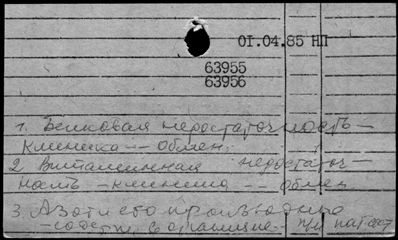 01.04.85 НП
63955
63956
1. Белковая недостаточность —
клиника — — обмен.
2. Витаминная недостаточ-
ность — клиника — — обмен
3. Азот и его производные
— в организме.